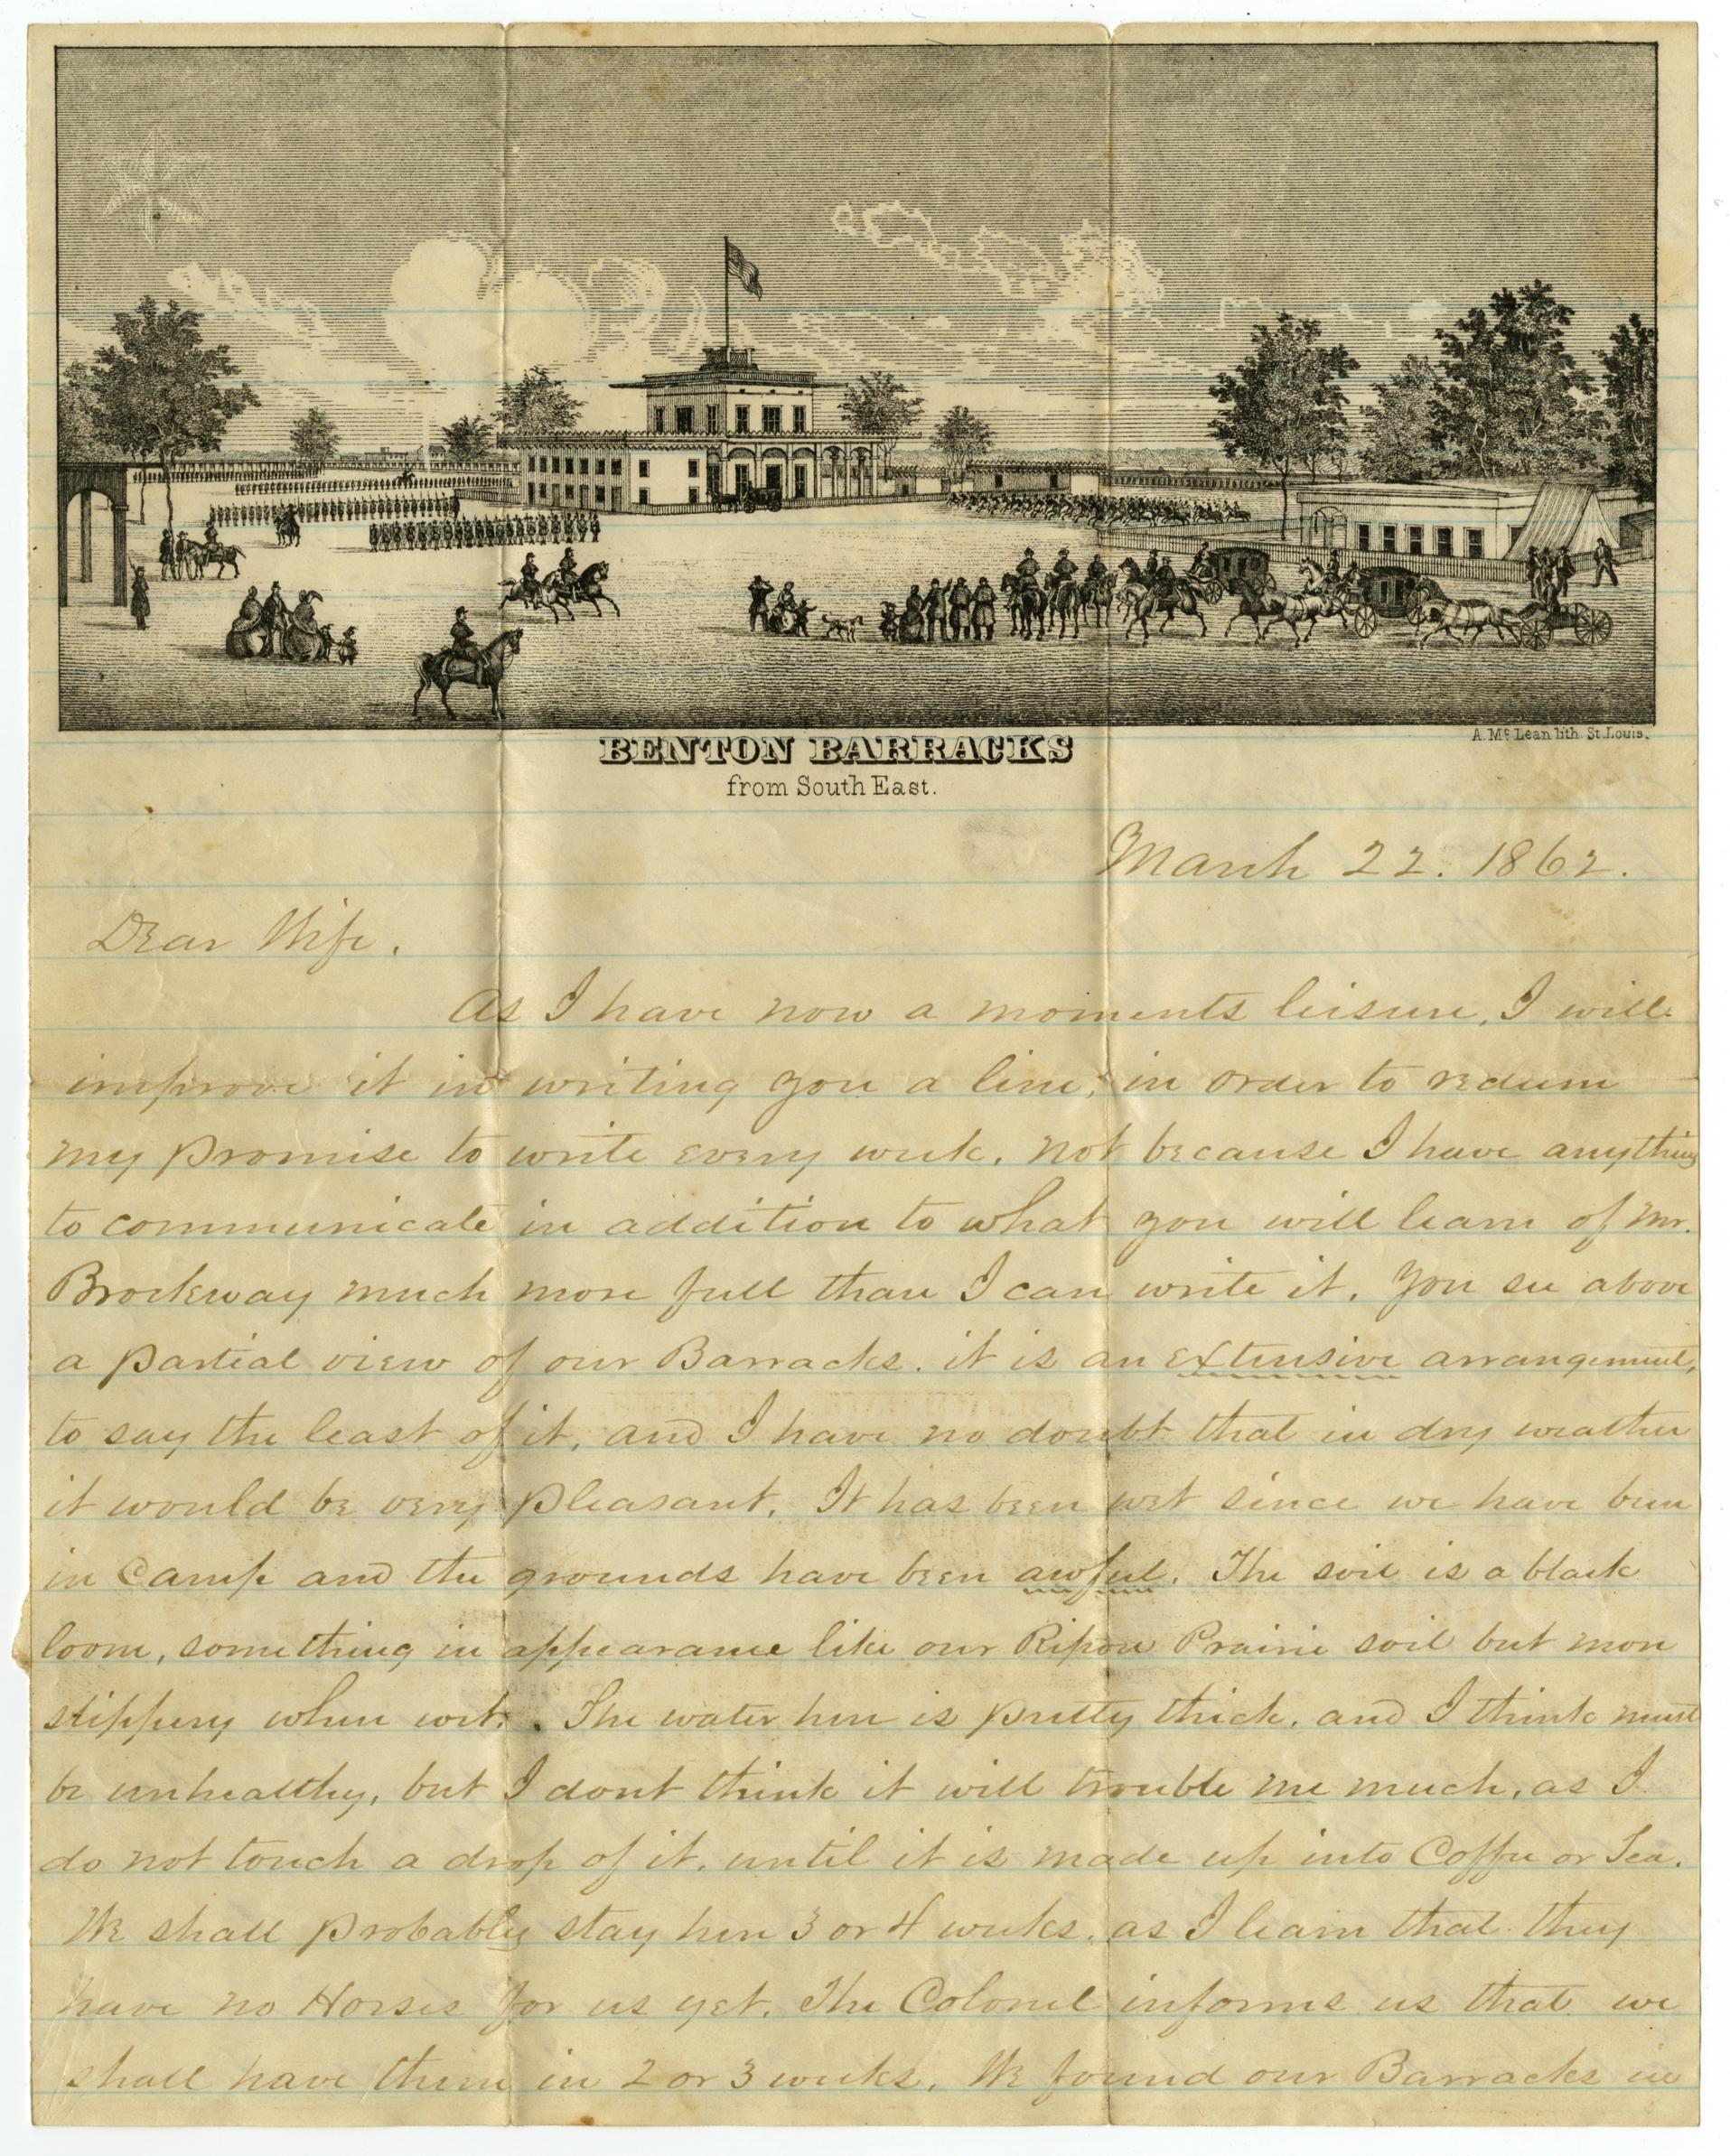 A. Mc Lean lith St. Louis.
BENTON BARRACKS
from South East.
March 22. 1862.
Dear Wife.
As I have now a moments leisure, I will
improve it in writing you a line, in order to redeem
my promise to write every week, not because I have anything
to communicate in addition to what you will learn of Mr.
Brockway much more full than I can write it. You see above
a partial view of our Barracks. it is an extensive arrangement,
to say the least of it, and I have no doubt that in dry weather
it would be very pleasant. It has been wet since we have been
in Camp and the grounds have been awful. The soil is a black
loom, something in appearance like our Ripon Prairie soil but more
slippery when wet. The water here is pretty thick, and I think must
be unhealthy, but I dont think it will trouble me much, as I
do not touch a drop of it, until it is made up into Coffee or Tea.
We shall probably stay here 3 or 4 weeks, as I learn that they
have no Horses for us yet. The Colonel informs us that we
shall have them in 2 or 3 weeks. We found our Barracks in